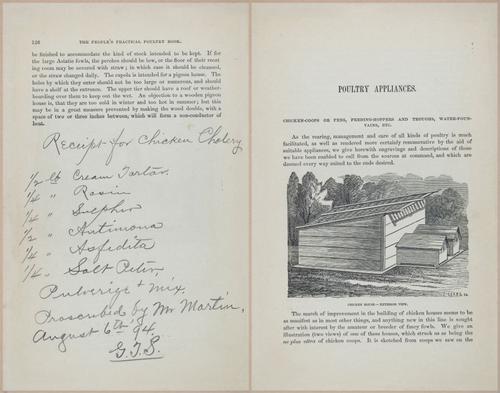 126 THE PEOPLE'S PRACTICAL POULTRY BOOK.
be finished to accommodate the kind of stock intended to be kept. If for
the large Asiatic fowls, the perches should be low, or the floor of their roost
ing room may be covered with straw; in which case it should be cleaned,
or the straw changed daily. The cupola is intended for a pigeon house. The
holes by which they enter should not be too large or numerous, and should
have a shelf at the entrance. The upper tier should have a roof or weather-
boarding over them to keep out the wet. An objection to a wooden pigeon
house is, that they are too cold in winter and too hot in summer; but this
may be in a great measure prevented by making the wood double, with a
space of two or three inches between, which will form a non-conductor of
heat.
Receipt for Chicken Cholery
1/2 lb Cream Tartar
1/4 " Rosin
1/4 " Sulphur
1/2 " Antimona
1/4 " Asfidita
1/4 " Salt Peter,
Pulverize & mix,
Proscribed by Mr Martin,
August 6th 94,
G.T.S.
POULTRY APPLIANCES.
CHICKEN-COOPS OR PENS, FEEDING-HOPPERS AND TROUGHS, WATER-FOUN-
TAINS, ETC.
As the rearing, management and care of all kinds of poultry is much
facilitated, as well as rendered more certainly remunerative by the aid of
suitable appliances, we give herewith engravings and descriptions of those
we have been enabled to cull from the sources at command, and which are
deemed every way suited to the ends desired.
CHICKEN HOUSE—EXTERIOR VIEW.
The march of improvement in the building of chicken houses seems to be
as manifest as in most other things, and anything new in this line is sought
after with interest by the amateur or breeder of fancy fowls. We give an
illustration (two views) of one of these houses, which struck us as being the
ne plus ultra of chicken coops. It is sketched from coops we saw on the